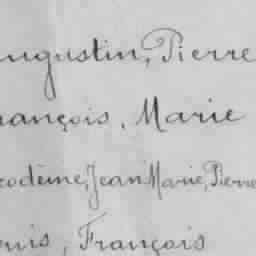 ugustin, Pierre
rançois, Marie
codème, Jean Marie, Pierre
ouis, François